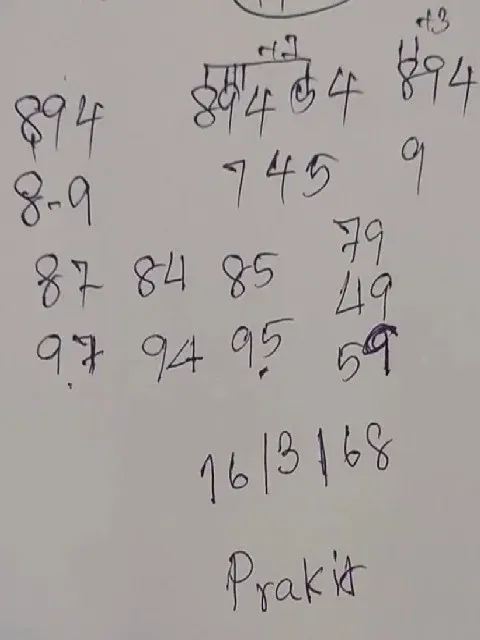 +7 +3
894 894 54 894
8-9 745 9
79
87 84 85
49
97 94 95
59
16/3/68
Prakit